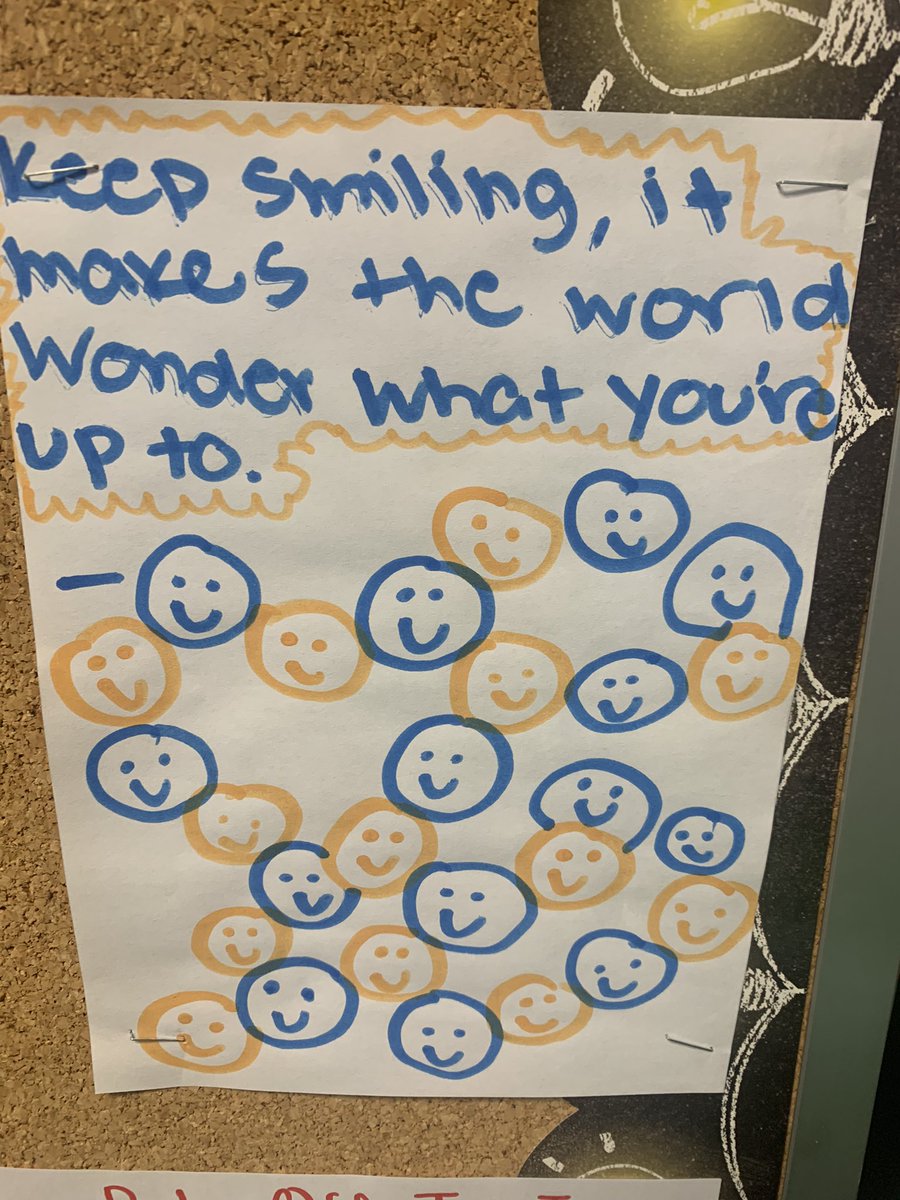 Keep smiling, it
makes the world
Wonder what you're
up to.